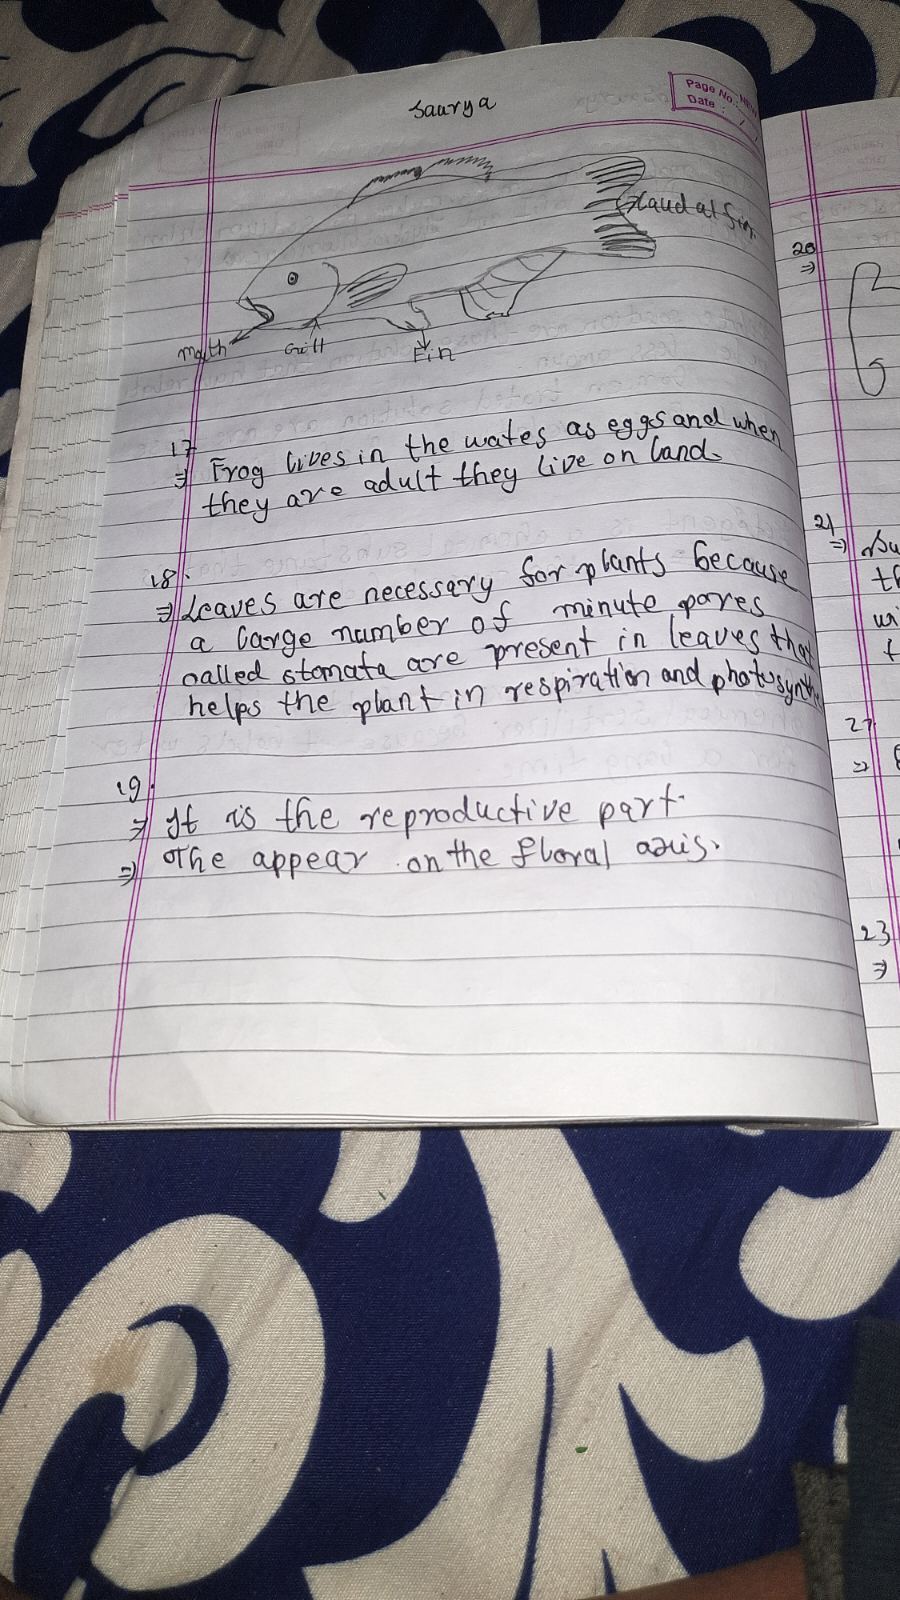 Saurya
Page No.:
Date :
caudal fin.
mouth
Gill
Fin
17
⇒ Frog lives in the wates as eggs and when
they are adult they live on land.
18.
⇒ Leaves are necessary for plants because
a large number of minute pores
called stomata are present in leaves that
helps the plant in respiration and photosynthe
19.
⇒ It is the reproductive part.
⇒ The appear on the floral axis.
20
⇒
21
⇒
th
wi
22
⇒
23
⇒